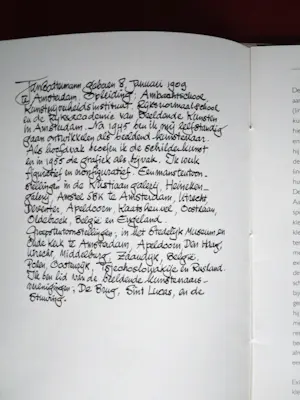 geboren 8 Januari 1909
te Amsterdam. Opleiding: Ambachtschool
Kunstnijverheidsinstituut. Rijksnormaalschool
en de Rijksacademie van Beeldende Kunsten
in Amsterdam. Na 1945 ben ik mij zelfstandig
gaan ontwikkelen als beeldend kunstenaar.
Als hoofdvak beoefen ik de schilderkunst
en in 1955 de grafiek als bijvak. Ik werk
figuratief en nonfiguratief. Eenmanstoon-
stellingen in de galery, Heineken-
galery, Amstel SBK te Amsterdam, Utrecht
Deventer, Apeldoorn, Kaatsheuvel, Oostzaan,
Oldebroek, België en Engeland.
Groepstentoonstellingen; in het Stedelijk Museum en
Oude Kerk te Amsterdam, Apeldoorn Den Haag,
Utrecht, Middelburg, Zaandijk, België,
Polen, Oostenrijk, Tsjechoslowakije en Rusland.
Ik ben lid van de beeldende kunstenaars-
verenigingen; De Brug, Sint Lucas, en de